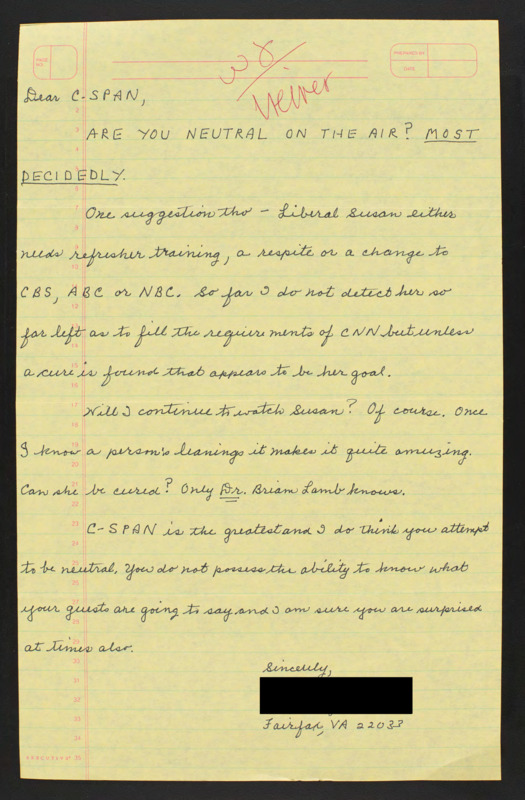 PAGE NO.
PREPARED BY
DATE
Viewer
Dear C-SPAN,
ARE YOU NEUTRAL ON THE AIR? MOST
DECIDEDLY.
One suggestion tho - Liberal Susan either
needs refresher training, a respite or a change to
CBS, ABC or NBC. So far I do not detect her so
far left as to fill the requirements of CNN but unless
a cure is found that appears to be her goal.
Will I continue to watch Susan? Of course. Once
I know a person's leanings it makes it quite amuzing.
Can she be cured? Only Dr. Briam Lamb knows.
C-SPAN is the greatest and I do think you attempt
to be neutral. You do not possess the ability to know what
your guests are going to say and I am sure you are surprised
at times also.
Sincerely,
Fairfax, VA 22033